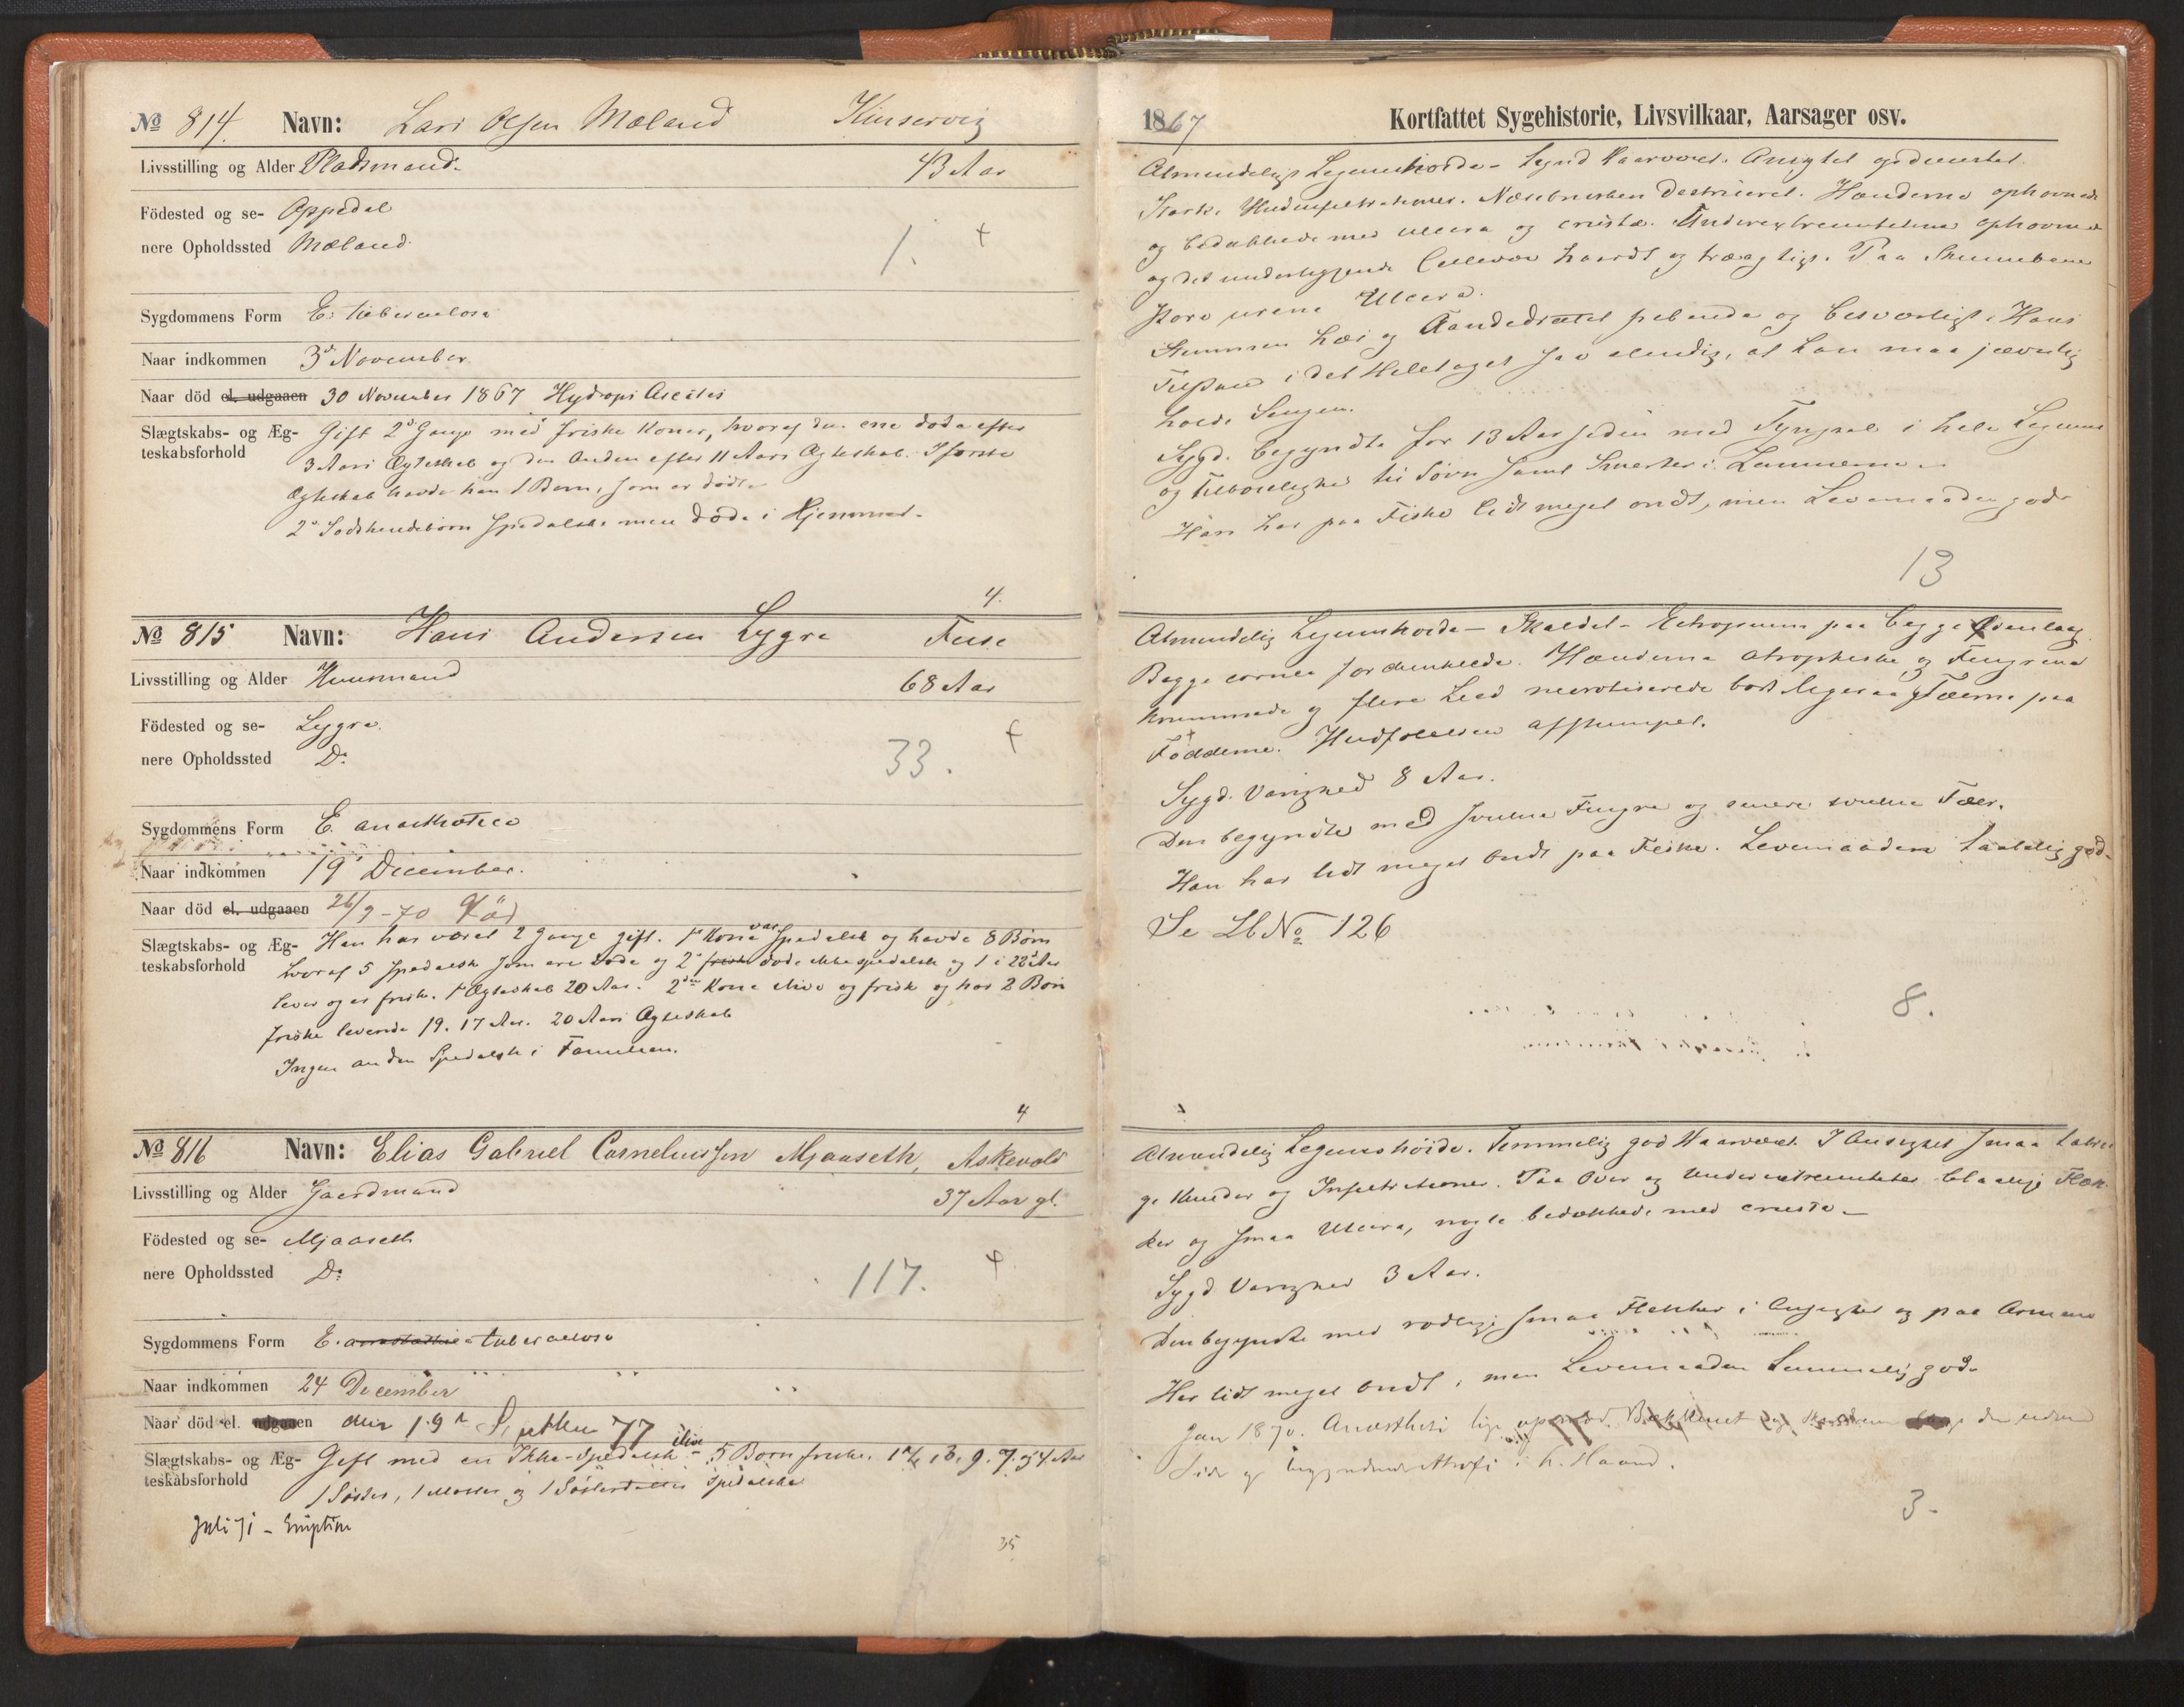 № 814. Navn: Lars Olsen Mæland Kinservig
Livsstilling og Alder Pladsmand. 43 Aar
Födested og se- Oppedal
nere Opholdssted Mæland. 1. +
Sygdommens Form E. tuberculosa
Naar indkommen 3d November
Naar död el. udgaaen 30 November 1867 Hydrops Ascites
Slægtskabs- og Æg- Gift 2de Gange med friske Koner, hvoraf den ene døde efter
teskabsforhold 3 Aars Ægteskab og den Anden efter 11 Aars Ægteskab. I første
Ægteskab havde han 1 Barn, som er død.
2de Sødskendebørn Spedalske men døde i Hjemmet.
4.
№ 815 Navn: Hans Andersen Lygre Fuse
Livsstilling og Alder Huusmand 68 Aar
Födested og se- Lygre.
nere Opholdssted Do 33. +
Sygdommens Form E. anæsthetica
Naar indkommen 19 December.
Naar död el. udgaaen 26/9-70 Död
Slægtskabs- og Æg- Han har været 2 Gange gift. 1ste Kone var Spedalsk og havde 8 Børn
teskabsforhold hvoraf 5 Spedalske som ere døde og 2de friske døde ikke spedalsk og 1 i 22de Aar
lever og er frisk. 1ste Ægteskab 20 Aar. 2den Kone i live og frisk og har 2 Børn
friske levende 19. 17 Aar. 20 Aars Ægteskab
Ingen anden Spedalsk i Familien.
4
№ 816 Navn: Elias Gabriel Corneliussen Mjaaseth, Askevold
Livsstilling og Alder Gaardmand 37 Aar gl.
Födested og se- Mjaaseth
nere Opholdssted Do 117. +
Sygdommens Form E. tuberculosa
Naar indkommen 24 December
Naar död el. udgaaen den 19de Septbr 77
Slægtskabs- og Æg- Gift med en Ikke-Spedalsk i live - 5 Børn friske. 13, 9. 7. og 4 Aar
teskabsforhold 1 Søster, 1 Moster og 1 Spedalske
Juli 71 - Eruption
35
1867 Kortfattet Sygehistorie, Livsvilkaar, Aarsager osv.
Almindeligt Legemshøide - Haarvæxt. Ansigtet
Stærke Næsebrusken destrueret. Hænderne ophovnede
og bedækkede med ulcera og crusta. Underextremiteterne ophovnede
og det underliggende haardt og træagtigt. Paa Skinnebene
store urene Ulcera.
Stemmen hæs og Aandedrættet pibende og besværligt. Hans
Tilstand i det Heletaget saa elendig, at han maa jævnlig
holde Sengen.
Sygd. begyndte for 13 Aar siden med Tyngsel i hele Legemet
og Tilbøielighed til Søvn samt Smerter i Lemmerne -
Han har paa Fiske lidt meget ondt, men Levemaaden god.
13
Almindelig Legemshøide - Skaldet - Ectropium paa begge Øienlaag
Begge cornea fordunklede. Hænderne atrophiske og Fingrene
krummede og flere Leed necrotiserede bort ligesaa Tæerne paa
Fødderne. Hudfølelsen afstumpet.
Sygd. Varighed 8 Aar.
Den begyndte med Fingre og senere Tæer.
Han har lidt meget ondt paa Fiske. Levemaaden taalelig god.
Se Lb No 126
8.
Almindelig Legemshøide. Temmelig god Haarvæxt. I Ansigtet smaa
ge Knuder og Infiltrationer. Paa Over og Underextremiteter blaalige Flæk-
ker og smaa Ulcera, nogle bedækkede med crusta -
Sygd Varighed 3 Aar.
Den begyndte med rødlige smaa Flekker i Ansigtet og paa Armene
Har lidt meget ondt, men Levemaaden temmelig god.
Jan 1870. Anæsthesi lige op mod Bækkenet og den
Side og begyndende Atrofi i h. Haand.
3-